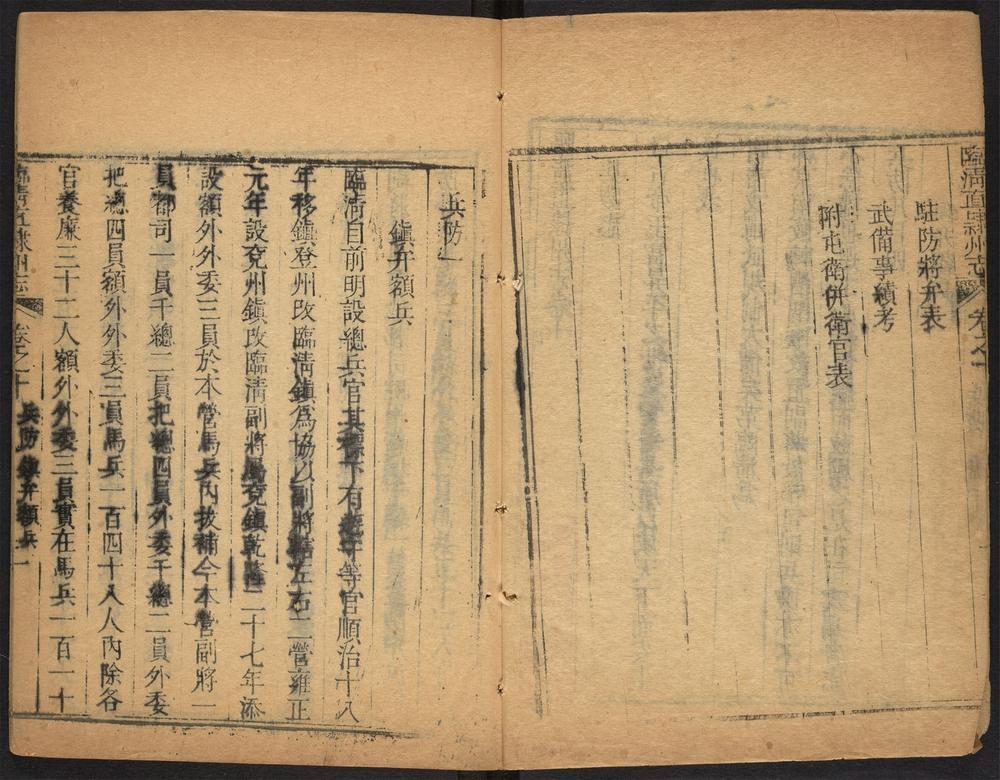 臨淸直隸州志 卷之十
駐防將弁表
武備事績考
附屯衛併衛官表
兵防
鎮弁額兵
臨淸自前明設總兵官其標下有遊守等官順治十八
年移鎮登州改臨淸鎮爲協以副將轄左右二營雍正
元年設兗州鎮改臨淸副將屬兗鎮乾隆二十七年添
設額外外委三員於本營馬兵內拔補今本營副將一
員都司一員千總二員把總四員外委千總二員外委
把總四員額外外委三員馬兵一百四十八人內除各
官養廉三十二人額外外委三員實在馬兵一百一十
臨淸直隸州志 卷之十 兵防 鎮弁額兵 一